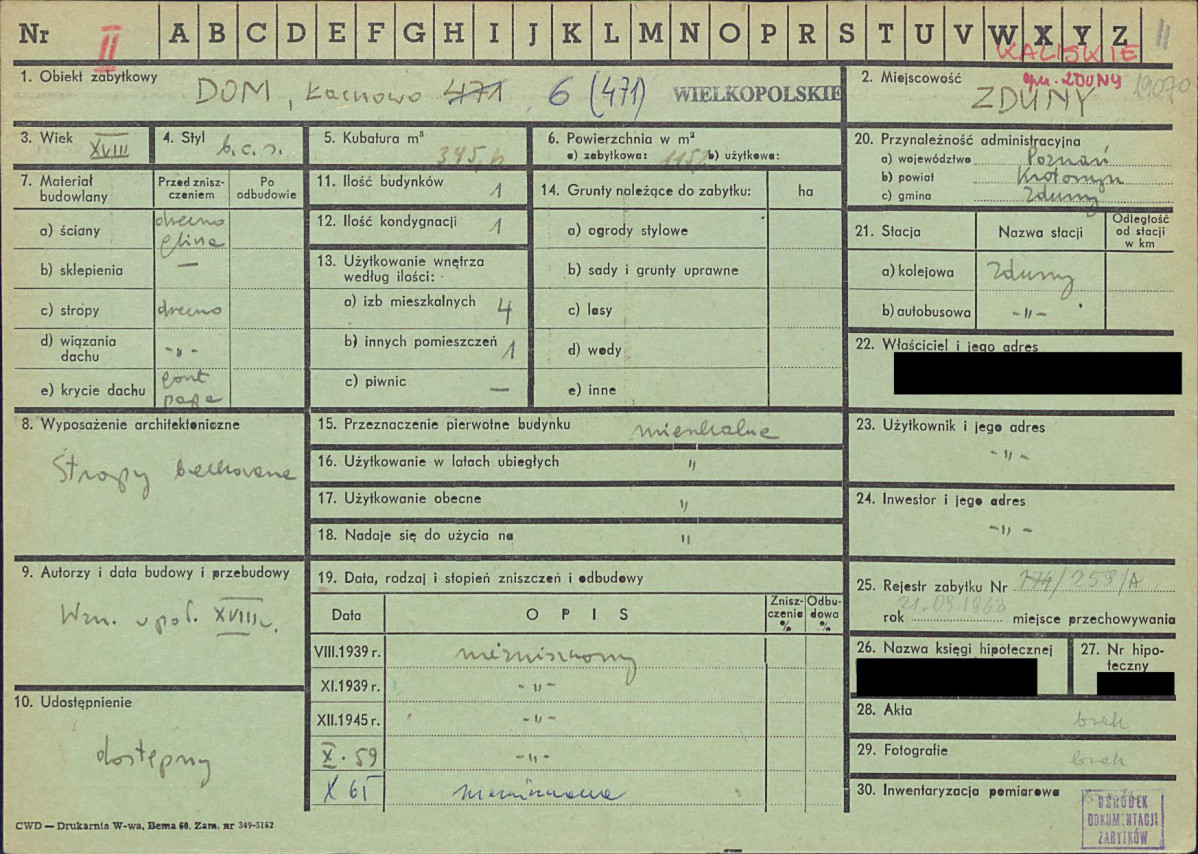 Nr II A B C D E F G H I J K L M N O P R S T U V W X Y Z 11
KALISKIE
1. Obiekt zabytkowy
DOM, Łacnowo 471 6 (471) WIELKOPOLSKIE
2. Miejscowość gm. ZDUNY
ZDUNY
3. Wiek XVIII
4. Styl b.c.s.
5. Kubatura m³ 345,6
6. Powierzchnia w m²
a) zabytkowa: b) użytkowa:
20. Przynależność administracyjna
a) województwo Poznań
b) powiat Krotoszyn
c) gmina Zduny
7. Materiał budowlany
Przed zniszczeniem
Po odbudowie
a) ściany drewno glina
b) sklepienia —
c) stropy drewno
d) wiązania dachu -"-
e) krycie dachu gont papa
11. Ilość budynków 1
12. Ilość kondygnacji 1
13. Użytkowanie wnętrza
według ilości:
a) izb mieszkalnych 4
b) innych pomieszczeń 1
c) piwnic —
14. Grunty należące do zabytku: ha
a) ogrody stylowe
b) sady i grunty uprawne
c) lasy
d) wody
e) inne
21. Stacja Nazwa stacji Odległość od stacji w km
a) kolejowa Zduny
b) autobusowa -"-
22. Właściciel i jego adres
8. Wyposażenie architektoniczne
Stropy belkowane
15. Przeznaczenie pierwotne budynku mieszkalne
16. Użytkowanie w latach ubiegłych "
17. Użytkowanie obecne "
18. Nadaje się do użycia na "
23. Użytkownik i jego adres
-"-
24. Inwestor i jego adres
-"-
9. Autorzy i data budowy i przebudowy
Wzn. w poł. XVIII w.
10. Udostępnienie
dostępny
19. Data, rodzaj i stopień zniszczeń i odbudowy
Data OPIS Zniszczenia % Odbudowa %
VIII.1939 r. niezniszczony
XI.1939 r. -"-
XII.1945 r. -"-
X. 59 -"-
X 61
25. Rejestr zabytku Nr 174/259/A
21.09.1968
rok miejsce przechowywania
26. Nazwa księgi hipotecznej
27. Nr hipoteczny
28. Akta brak
29. Fotografie brak
30. Inwentaryzacja pomiarowa
OŚRODEK
DOKUMENTACJI
ZABYTKÓW
CWD — Drukarnia W-wa, Bema 60. Zam. nr 349-5162